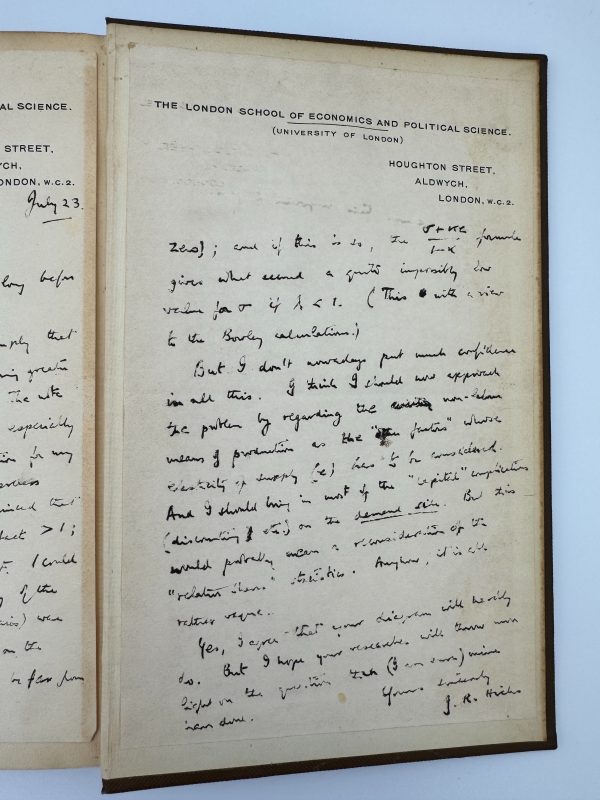 AL SCIENCE.
STREET,
YCH,
ONDON, W.C.2.
July 23.
long before
imply that
ing greater
The
especially
for my
process
that
> 1;
I could
of the
were
on the
be far from
THE LONDON SCHOOL OF ECONOMICS AND POLITICAL SCIENCE.
(UNIVERSITY OF LONDON)
HOUGHTON STREET,
ALDWYCH,
LONDON, W.C.2.
zero}; and if this is so, the formula
gives what seemed a quite impossibly low
value for σ if λ < 1. (This with a view
to the Bowley calculations.)
But I don't nowadays put much confidence
in all this. I think I should now approach
the problem by regarding the non-labour
means of production as the "factors" whose
elasticity of supply (e) has to be considered.
And I should bring in most of the "capital" complications
(discounting etc.) on the demand side. But this
would probably mean a reconsideration of the
"relative shares" statistics. Anyhow, it is all
rather vague.
Yes, I agree that your diagram will hardly
do. But I hope your researches will throw more
light on the question than (I am sure) mine
have done.
Yours sincerely
J. R. Hicks